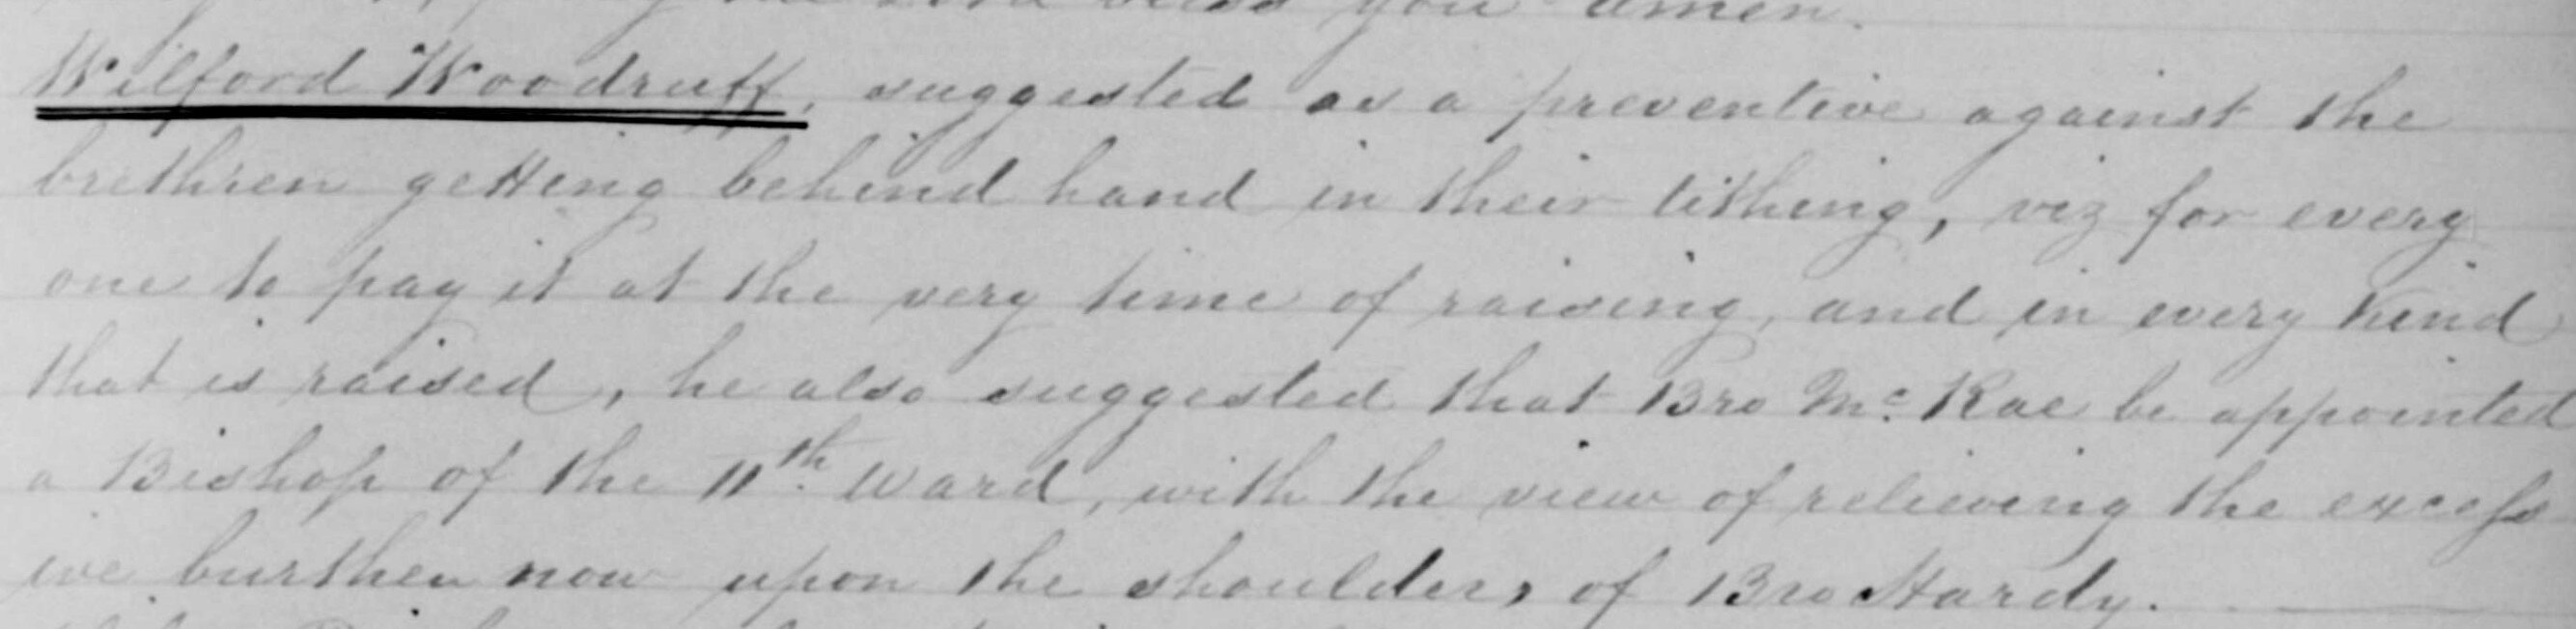 the Lord bless you amen.
Wilford Woodruff, suggested as a preventive against the
brethren getting behind hand in their tithing, viz for every
one to pay it at the very time of raising, and in every kind
that is raised, he also suggested that Bro Mc. Rae be appointed
a Bishop of the 11th. Ward, with the view of relieving the excess
ive burthen now upon the shoulders of Bro Hardy.